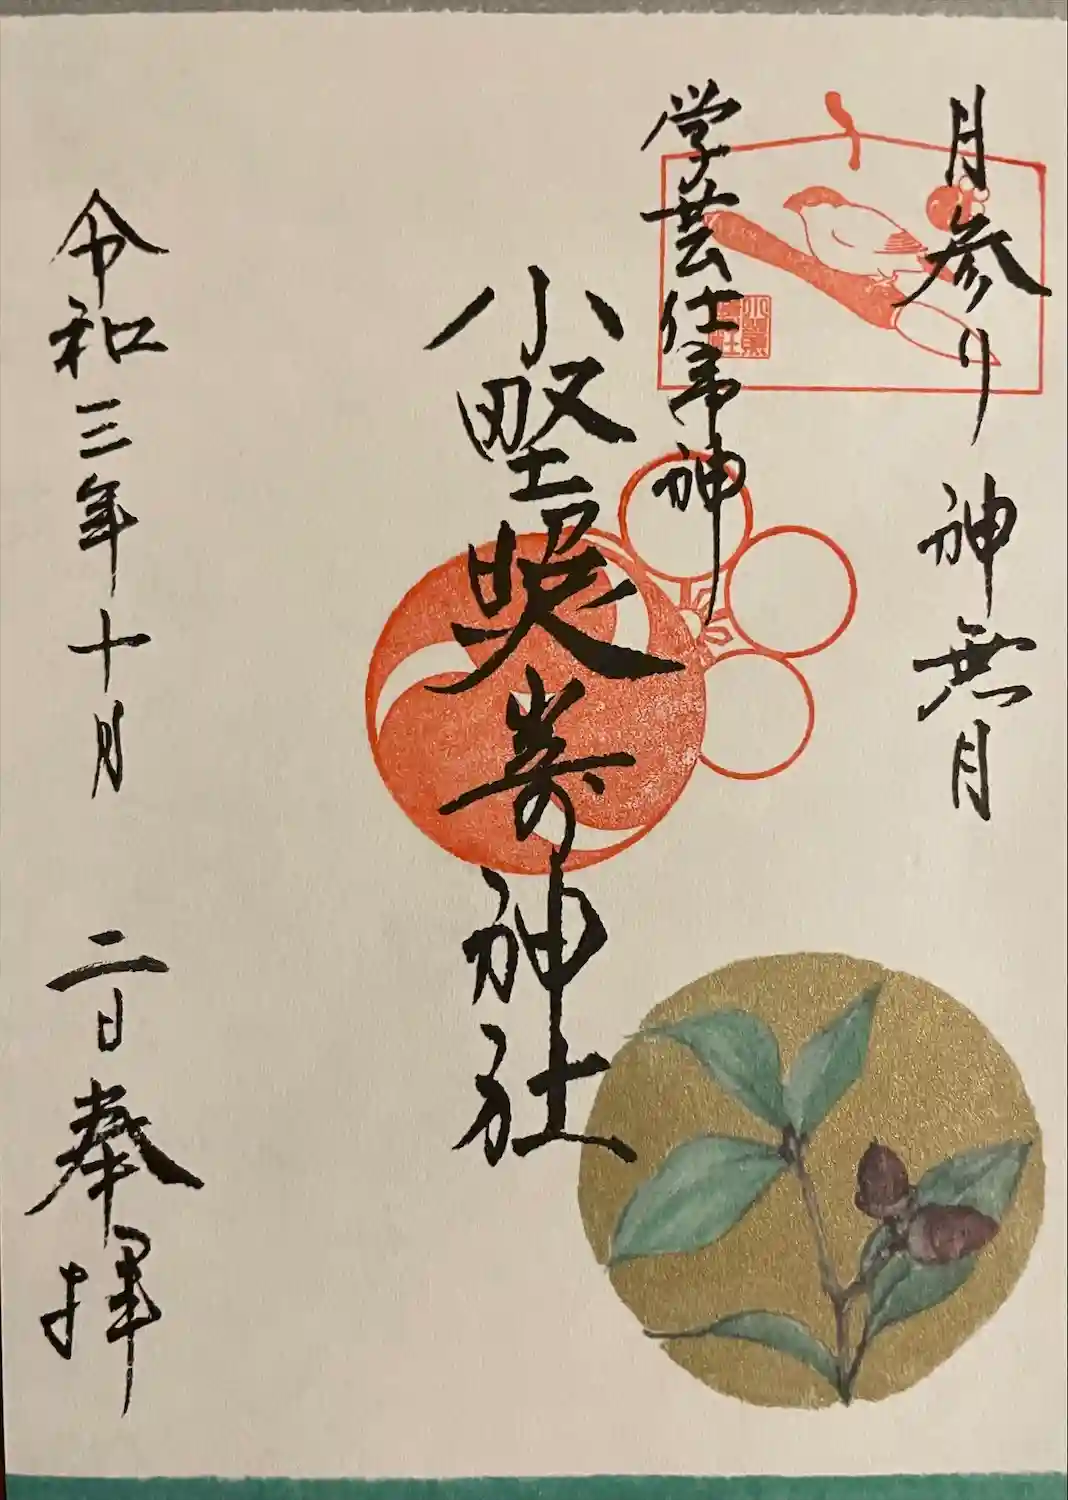 月参り 神無月
学芸仕事神
小野照嵜神社
令和三年十月二日奉拝